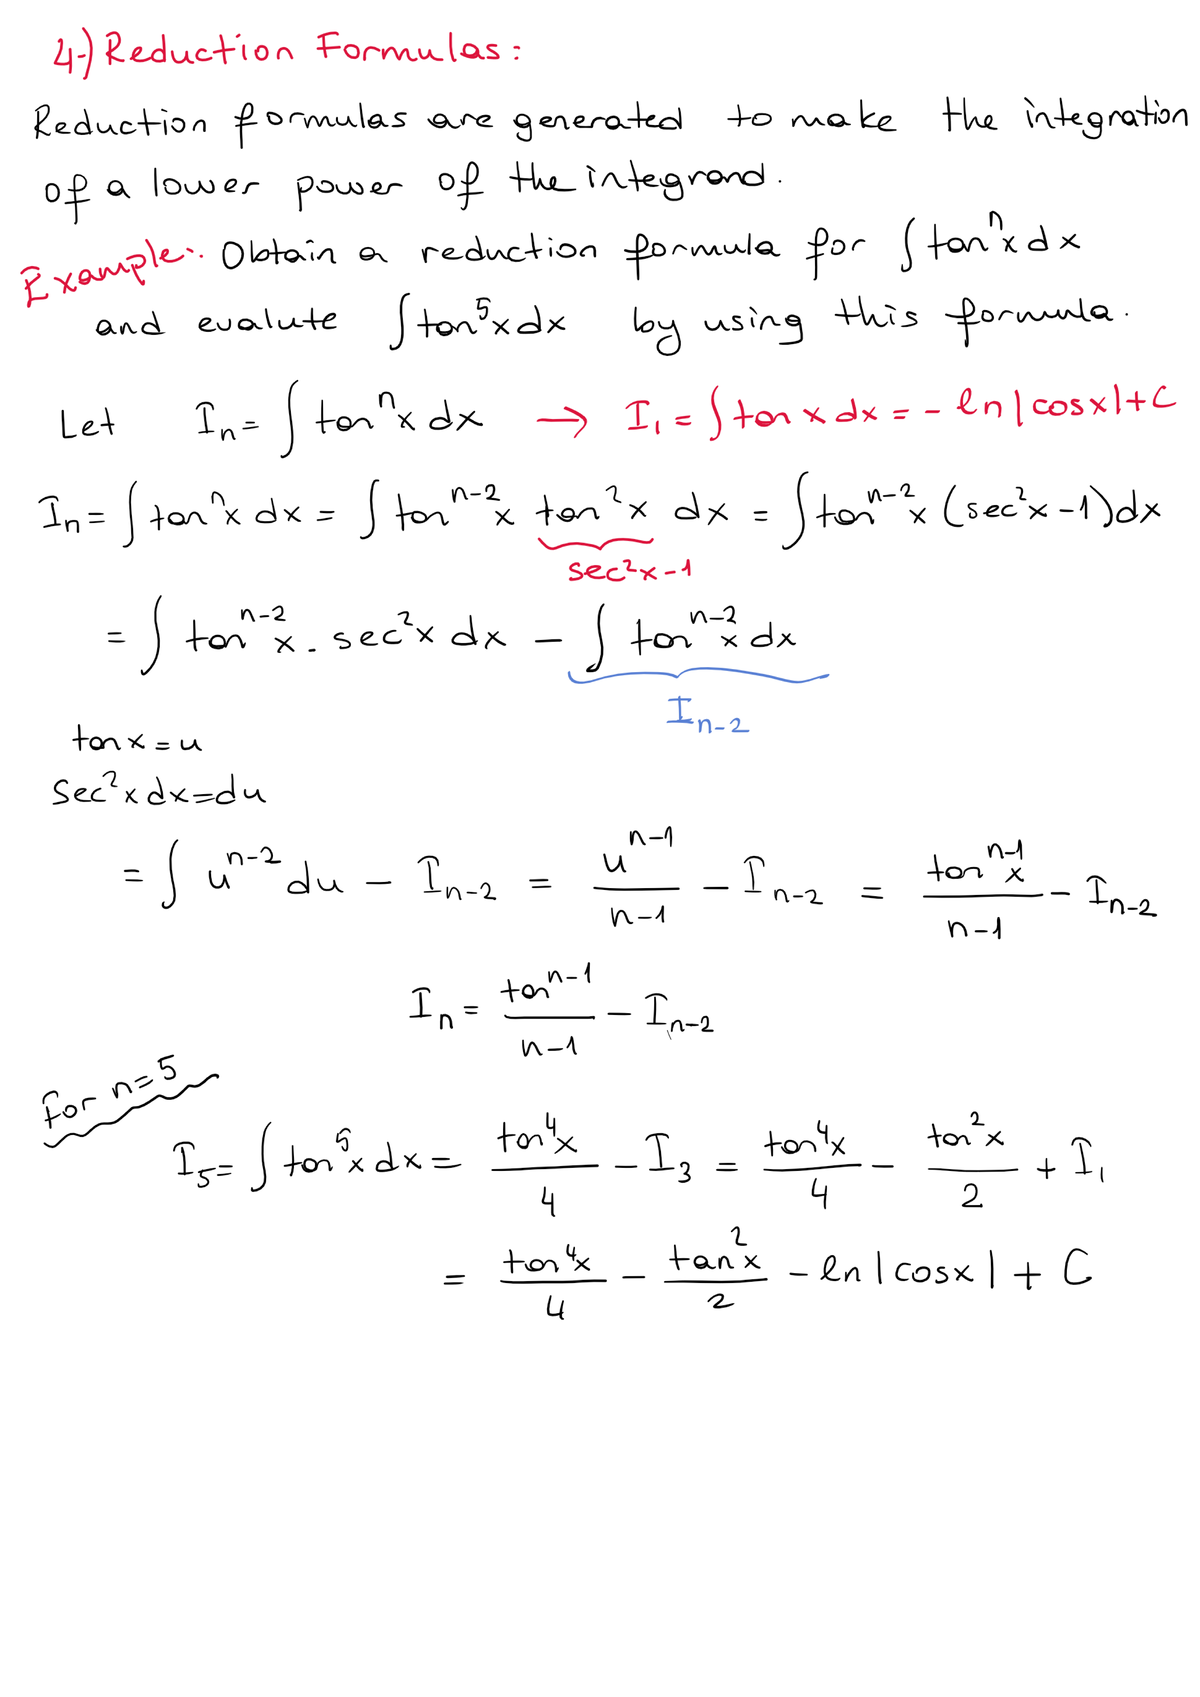 4-) Reduction Formulas:
Reduction formulas are generated to make the integration
of a lower power of the integrand.
Example:. Obtain a reduction formula for ∫ tanⁿx dx
and evalute ∫ tan⁵x dx by using this formula.
Let Iₙ = ∫ tanⁿx dx → I₁ = ∫ tan x dx = - ln |cosx| + C
Iₙ = ∫ tanⁿx dx = ∫ tanⁿ⁻²x tan²x dx = ∫ tanⁿ⁻²x (sec²x - 1) dx
sec²x - 1
= ∫ tanⁿ⁻²x . sec²x dx - ∫ tanⁿ⁻²x dx
Iₙ₋₂
tan x = u
sec²x dx = du
= ∫ uⁿ⁻² du - Iₙ₋₂ = uⁿ⁻¹/(n-1) - Iₙ₋₂ = tanⁿ⁻¹x/(n-1) - Iₙ₋₂
Iₙ = tanⁿ⁻¹/(n-1) - Iₙ₋₂
for n=5
I₅ = ∫ tan⁵x dx = tan⁴x/4 - I₃ = tan⁴x/4 - tan²x/2 + I₁
= tan⁴x/4 - tan²x/2 - ln |cosx| + C